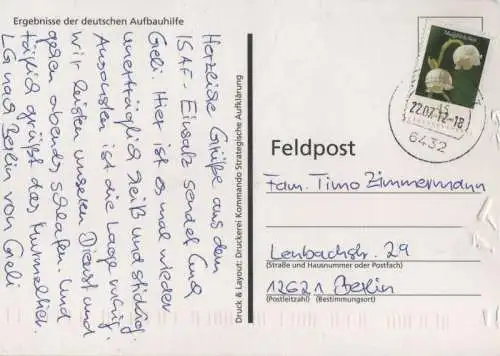 Ergebnisse der deutschen Aufbauhilfe
Herzliche Grüße aus dem
ISAF-Einsatz sendet Euch
Geli. Hier ist es mal wieder
unerträglich heiß und stickig.
Ansonsten ist die Lage ruhig.
Wir leisten unseren Dienst und
gehen abends schlafen. Und
täglich grüßt das Murmeltier.
LG nach Berlin von Geli
Druck & Layout: Druckerei Kommando Strategische Aufklärung
Maiglöckchen
45
22.07.12-18
6432
Feldpost
Fam. Timo Zimmermann
Lenbachstr. 29
(Straße und Hausnummer oder Postfach)
12621 Berlin
(Postleitzahl) (Bestimmungsort)